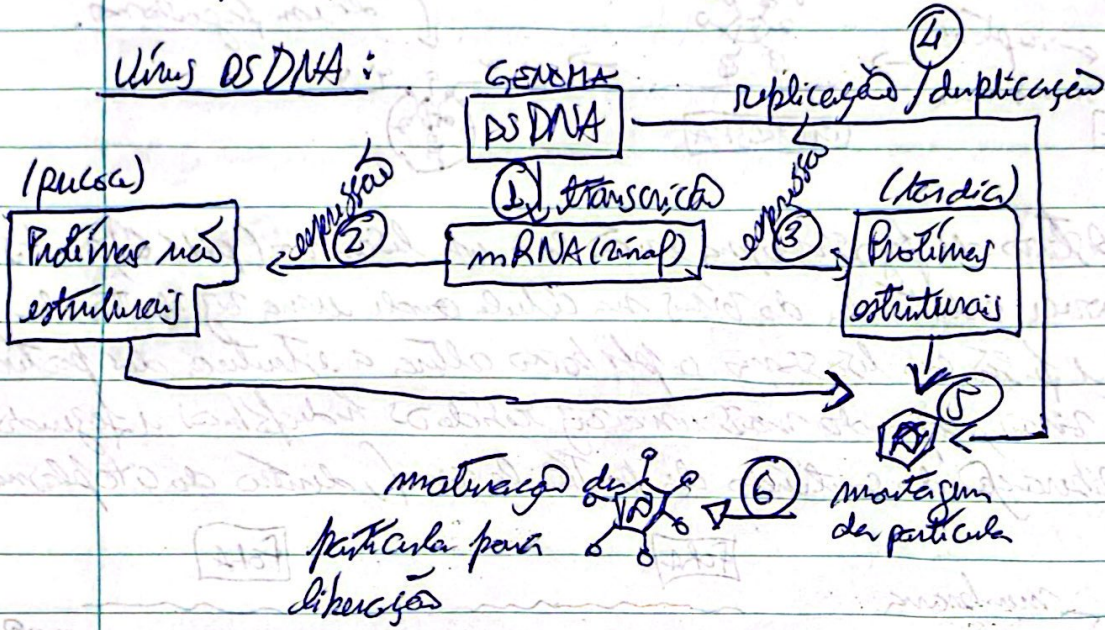 Vírus DSDNA:
GENOMA
DSDNA
4
replicação / duplicação
(precoce)
Proteínas não
estruturais
expressão
2
1
transcrição
mRNA
expressão
3
(tardia)
Proteínas
estruturais
5
montagem
da partícula
6
maturação da
partícula para
liberação